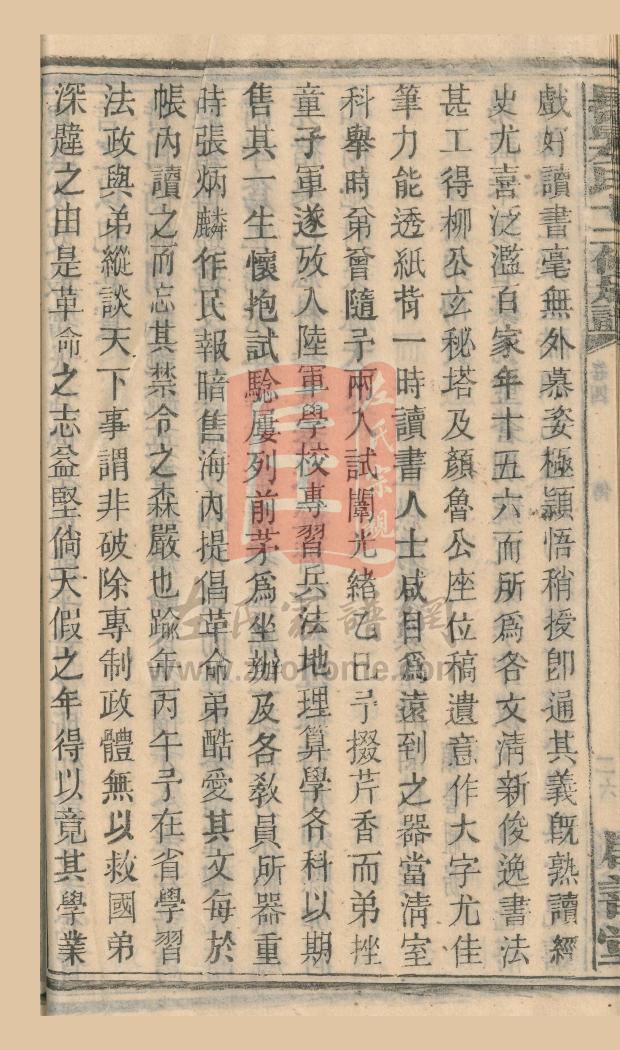 戲好讀書毫無外慕姿極穎悟稍授卽通其義旣熟讀經
史尤喜泛濫百家年十五六而所爲各文淸新俊逸書法
甚工得柳公玄秘塔及顏魯公座位稿遺意作大字尤佳
筆力能透紙背一時讀書人士咸目爲遠到之器當淸室
科舉時弟曾隨予兩入試闈光緒乙巳予掇芹香而弟挫
童子軍遂攷入陸軍學校專習兵法地理算學各科以期
售其一生懷抱試驗屢列前茅爲坐辦及各敎員所器重
時張炳麟作民報暗售海內提倡革命弟酷愛其文每於
帳內讀之而忘其禁令之森嚴也踰年丙午予在省學習
法政與弟縱談天下事謂非破除專制政體無以救國弟
深韙之由是革命之志益堅倘天假之年得以竟其學業
卷四
二六
左氏宗親
左氏宗譜網
www.zuohome.com